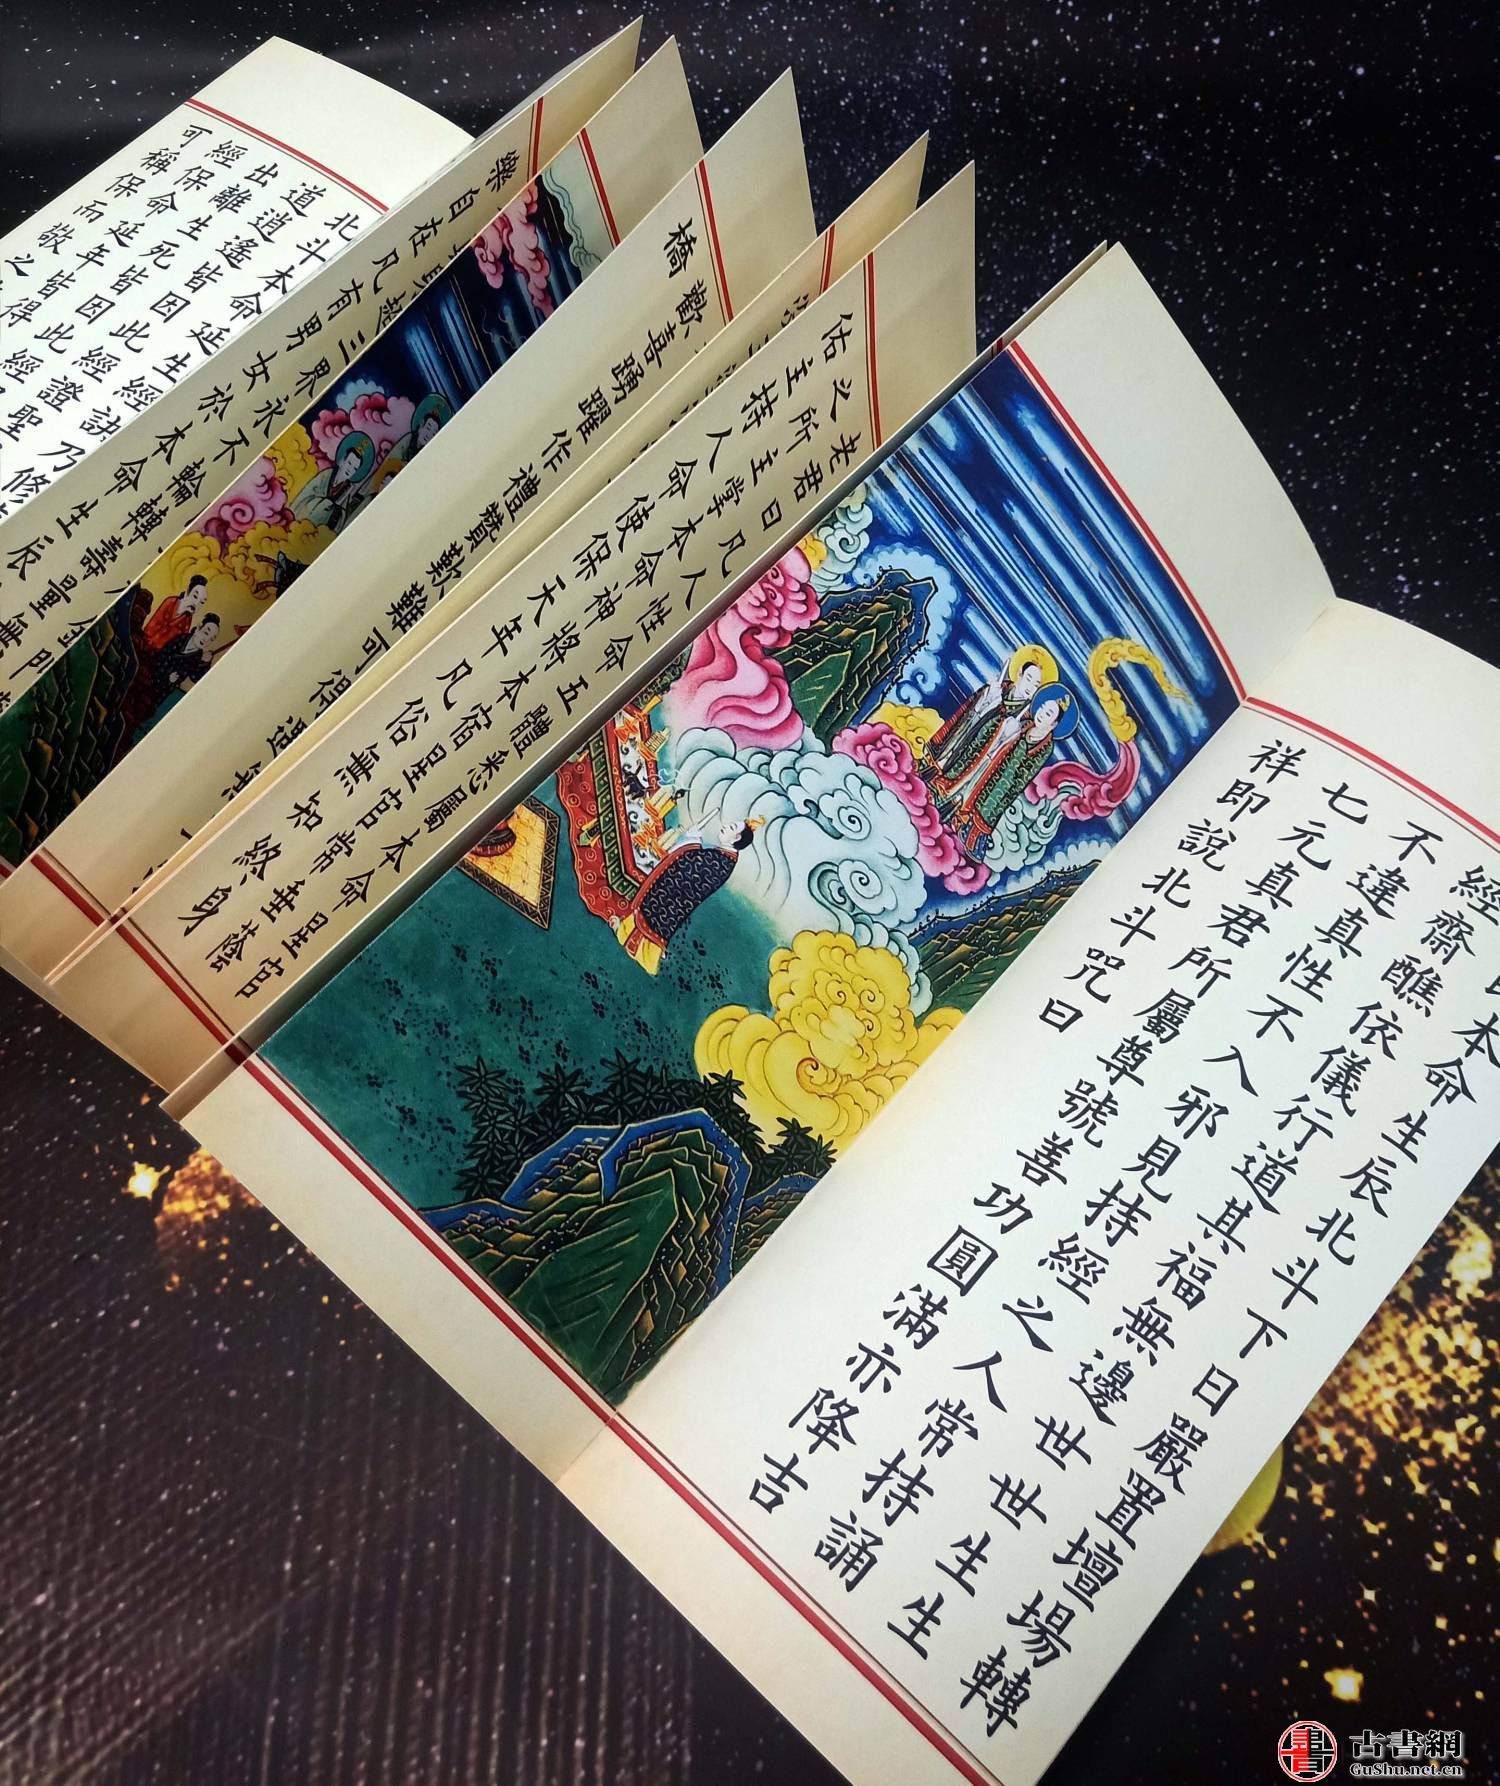 本命生辰北斗下日嚴置壇場轉
經齋醮依儀行道其福無邊世世生生
不違真性不入邪見持經之人常持誦
七元真君所屬尊號善功圓滿亦降吉
祥即說北斗咒曰
老君曰凡人性命五體悉屬本命星官
之所主掌本命神將本宿星官常垂蔭
佑主持人命使保天年凡俗無知終身
歡喜踴躍作禮讚歎難可得遇
橋
三界永不輪轉壽量無
樂自在凡有男女於本命生辰
北斗本命延生經訣乃修
道逍遙皆因此經證聖
出離生死皆因此經
經保命延年皆得
可稱保而敬之
古書網
GuShu.net.cn